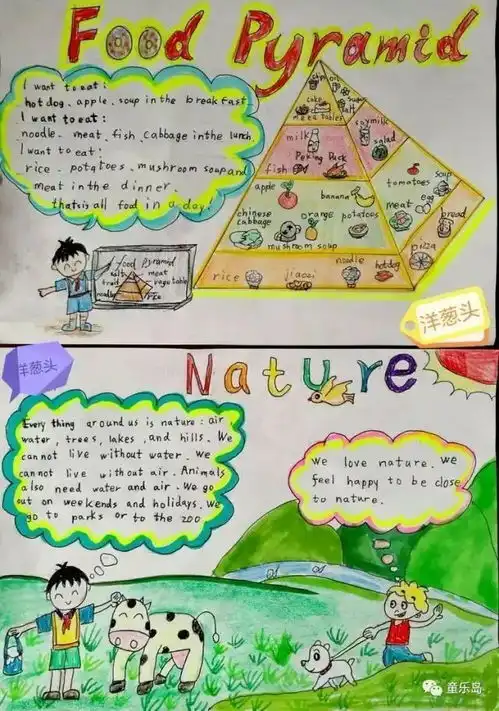 Food Pyramid
I want to eat:
hot dog, apple, soup in the breakfast
I want to eat:
noodle, meat, fish, cabbage in the lunch
I want to eat:
rice, potatoes, mushroom soup and
meat in the dinner.
that's is all food in a day!
food pyramid
salt meat
fruit vegetable
noodle rice
chips oil
cake sugar
salt
milk
soymilk
salad
fish
apple
banana
chinese
cabbage
orange
potatoes
mushroom soup
tomatoes
soup
egg
meat
bread
pizza
rice
jiaozi
noodle
hotdog
洋葱头
洋葱头
Nature
Every thing around us is nature: air,
water, trees, lakes, and hills. We
cannot live without water. We
cannot live without air. Animals
also need water and air. We go
out on weekends and holidays. We
go to parks or to the zoo
we love nature. we
feel happy to be close
to nature.
童乐岛